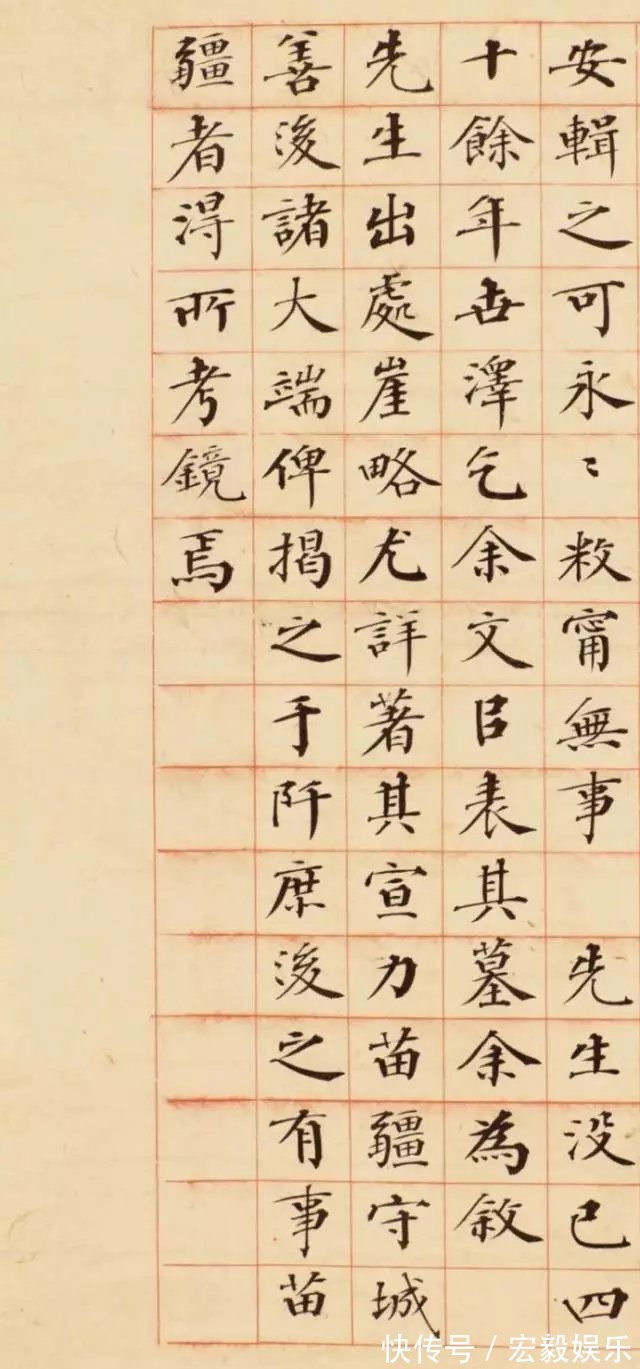 安輯之可永〻敉甯無事 先生没已四
十餘年世澤乞余文㠯表其墓余為敘
先生出處崖略尤詳著其宣力苗疆守城
善後諸大端俾揭之于阡庶後之有事苗
疆者得所考鏡焉
快传号/宏毅娱乐